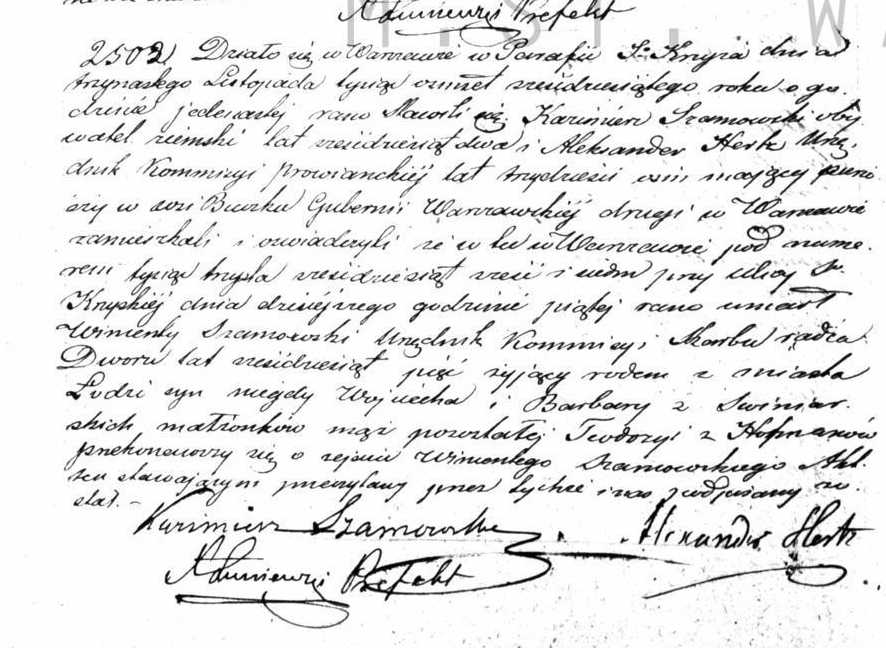 Prefekt
2502 Działo się w Warszawie w Parafii S. Krzyża dnia
trzynastego Listopada tysiąc ośmset sześćdziesiątego roku o go
dzinie jedenastej rano Stawili się Kazimierz Szamowski oby
watel ziemski lat sześćdziesiąt dwa i Aleksander Hertz Urzę
dnik Kommissyi prowianckiéj lat trzydzieści ośm mający pierw
szy w wsi Buczku Gubernii Warszawskiéj drugi w Warszawie
zamieszkali i oświadczyli że w tu w Warszawie pod nume
rem tysiąc trzysta sześćdziesiąt sześć i siedm przy ulicy Sto
Krzyskiéj dnia dzisiéjszego godzinie piątej rano umarł
Wincenty Szamowski Urzędnik Kommisyi Skarbu radca
Dworu lat sześćdziesiąt pięć żyjący rodem z miasta
Łodzi syn niegdy Wojciecha i Barbary z Świniar
skich małżonków mąż pozostałej Teodozyi z Hofmanów
przekonawszy się o zejściu Wincentego Szamowskiego Akt
ten stawającym przeczytany przez tychże i nas podpisany zo
stał. –
Kazimierz Szamowski Alexander Hertz
Prefekt